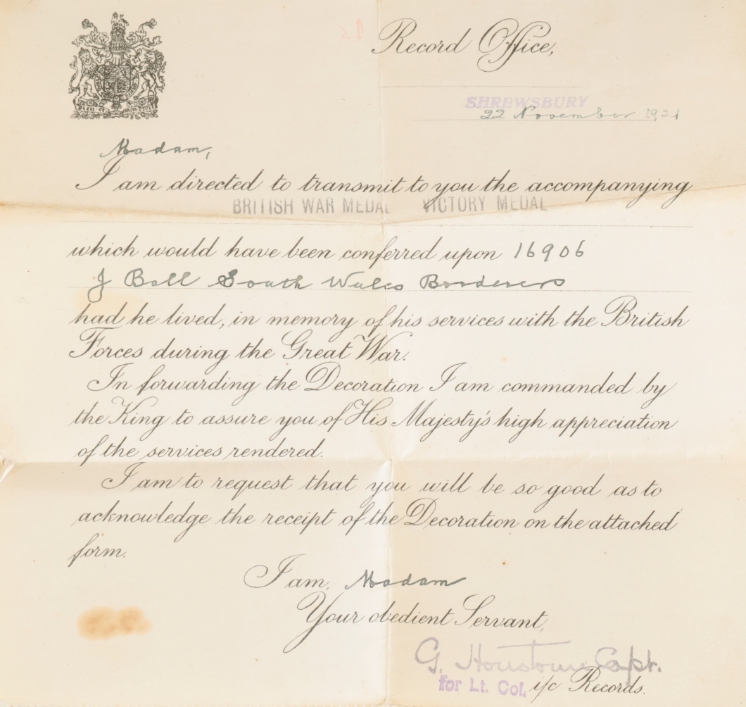 Record Office,
SHREWSBURY
22 November 1921
Madam,
I am directed to transmit to you the accompanying
BRITISH WAR MEDAL VICTORY MEDAL
which would have been conferred upon 16906
J Ball South Wales Borderers
had he lived, in memory of his services with the British
Forces during the Great War.
In forwarding the Decoration I am commanded by
the King to assure you of His Majesty's high appreciation
of the services rendered.
I am to request that you will be so good as to
acknowledge the receipt of the Decoration on the attached
form.
I am, Madam
Your obedient Servant,
G. Capt.
for Lt. Col. i/c Records.